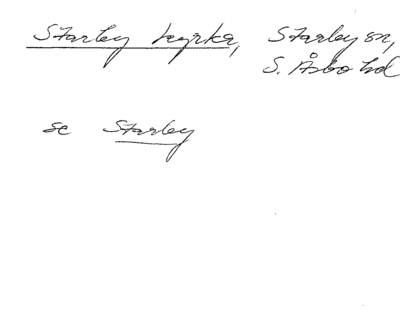 Starby kyrka, Starby sn,
S. Åsbo hd
se Starby